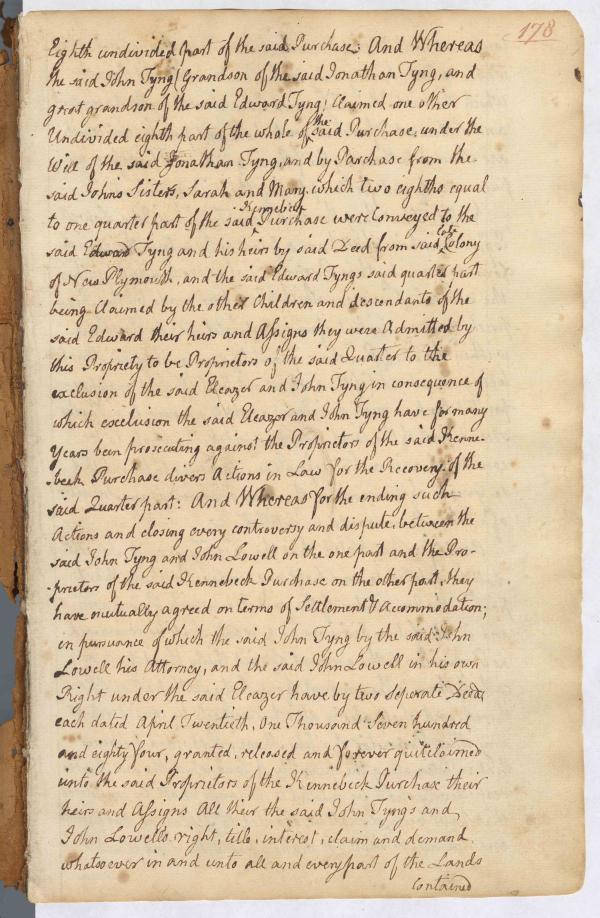 178
Eighth undivided part of the said Purchase: And Whereas
the said John Tyng (Grandson of the said Jonathan Tyng, and
great grandson of the said Edward Tyng) Claimed one other
Undivided eighth part of the whole of the said Purchase, under the
Will of the said Jonathan Tyng, and by Purchase from the
said Johns Sisters, Sarah and Mary. which two eighths equal
to one quarter part of the said Kennebeck Purchase were Conveyed to the
said Edward Tyng and his heirs by said Deed from said Colony
of New Plymouth, and the said Edward Tyngs said quarter part
being Claimed by the other Children and descendants of the
said Edward their heirs and Assigns they were Admitted by
this Propriety to be Proprietors of the said Quarter to the
exclusion of the said Eleazer and John Tyng in consequence of
which exclusion the said Eleazer and John Tyng have for many
Years been prosecuting against the Proprietors of the said Kenne-
-beck Purchase divers Actions in Law for the Recovery of the
said Quarter part: And Whereas for the ending such
Actions and closing every controversy and dispute, between the
said John Tyng and John Lowell on the one part and the Pro-
-prietors of the said Kennebeck Purchase on the other part, they
have mutually agreed on terms of Settlement & Accommodation;
in pursuance of which the said John Tyng by the said John
Lowell his Attorney, and the said John Lowell in his own
Right under the said Eleazer have by two Seperate Deeds
each dated April Twentieth, One Thousand Seven hundred
and eighty four, granted, released and forever quitclaimed
unto the said Proprietors of the Kennebeck Purchase their
heirs and Assigns All their the said John Tyngs and
John Lowells right, title, interest, claim and demand
whatsoever in and unto all and every part of the Lands
contained